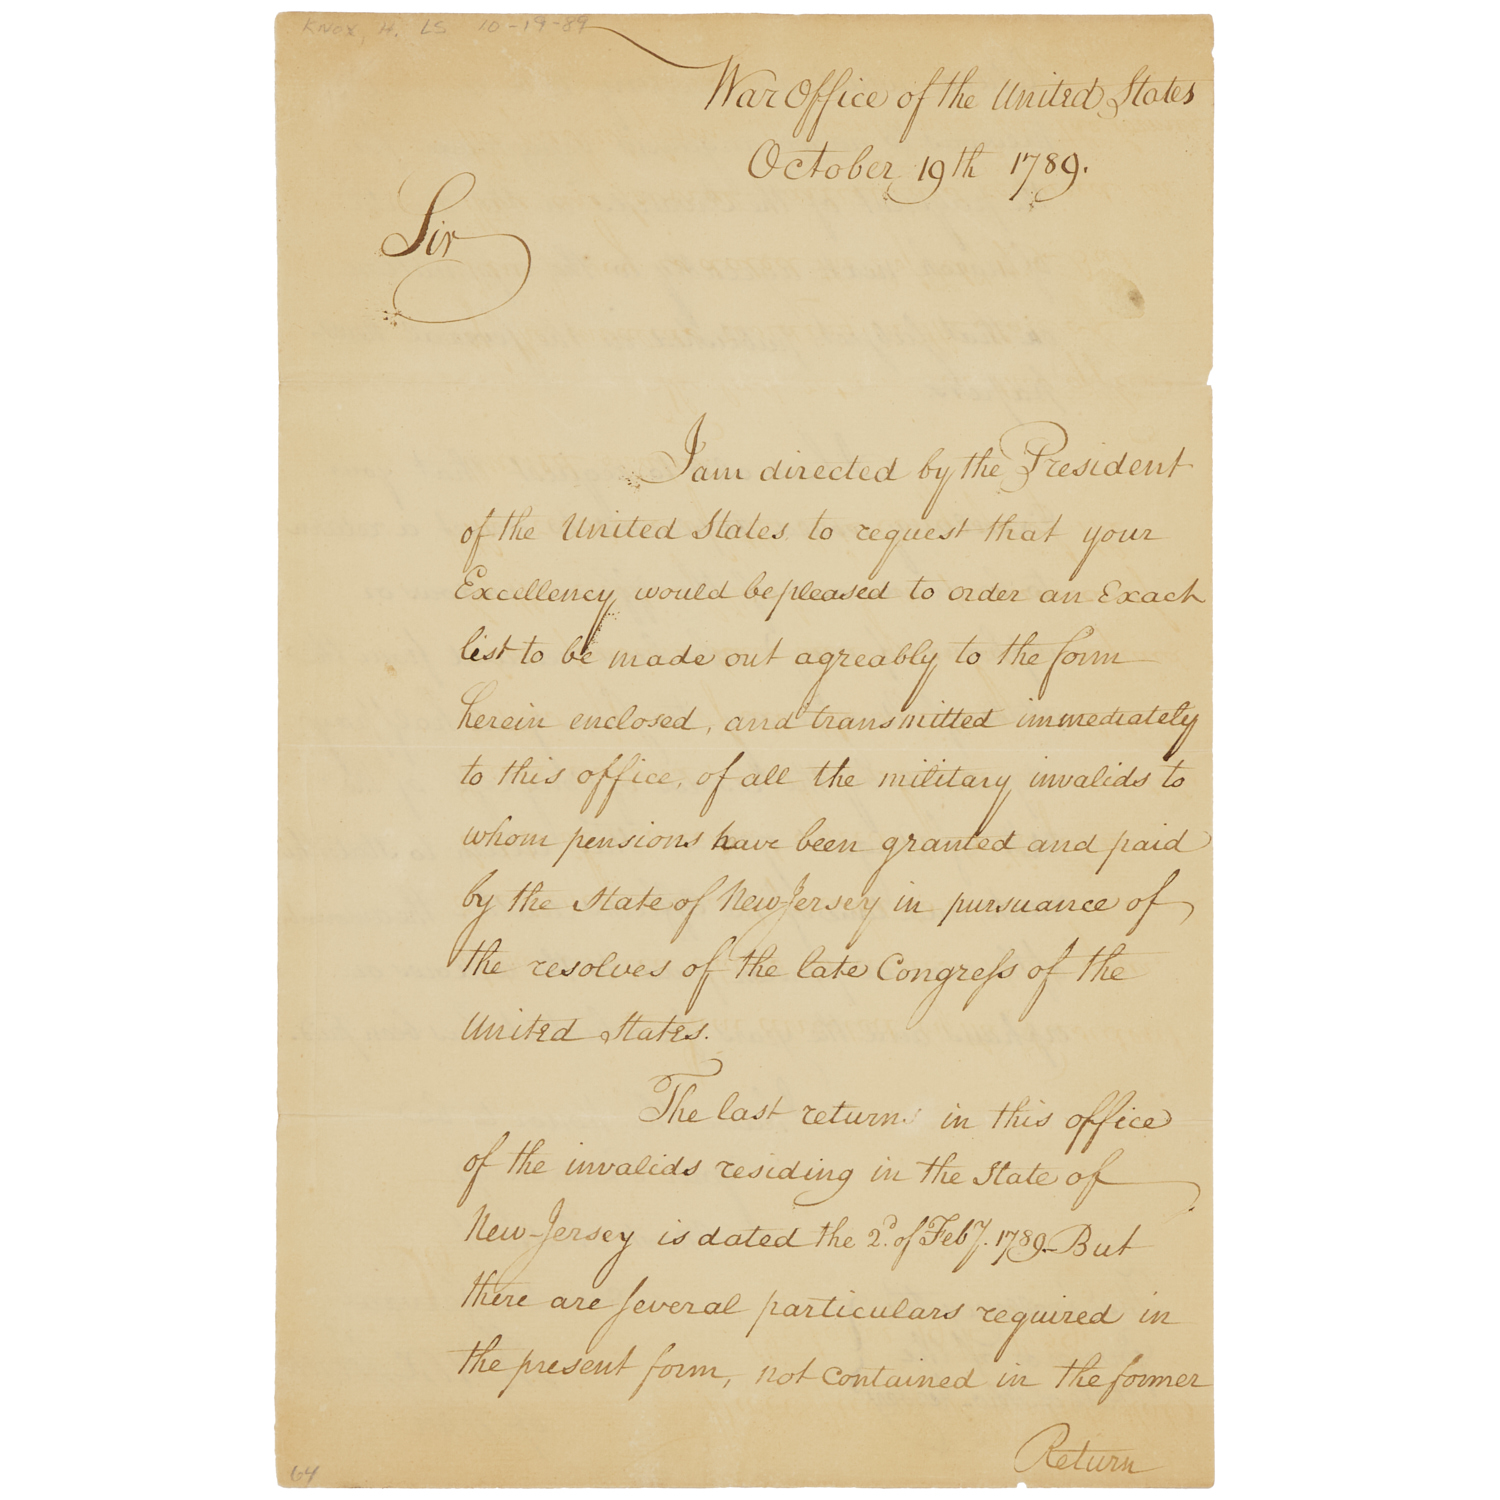 Knox, H. LS 10-19-89
War Office of the United States
October 19th 1789.
Sir
I am directed by the President
of the United States to request that your
Excellency would be pleased to order an Exact
list to be made out agreably to the form
herein enclosed, and transmitted immediately
to this office, of all the military invalids to
whom pensions have been granted and paid
by the State of New Jersey in pursuance of
the resolves of the late Congreſs of the
United States.
The last returns in this office
of the invalids residing in the State of
New-Jersey is dated the 2d. of Feby. 1789 - But
there are several particulars required in
the present form, not contained in the former
Return
64